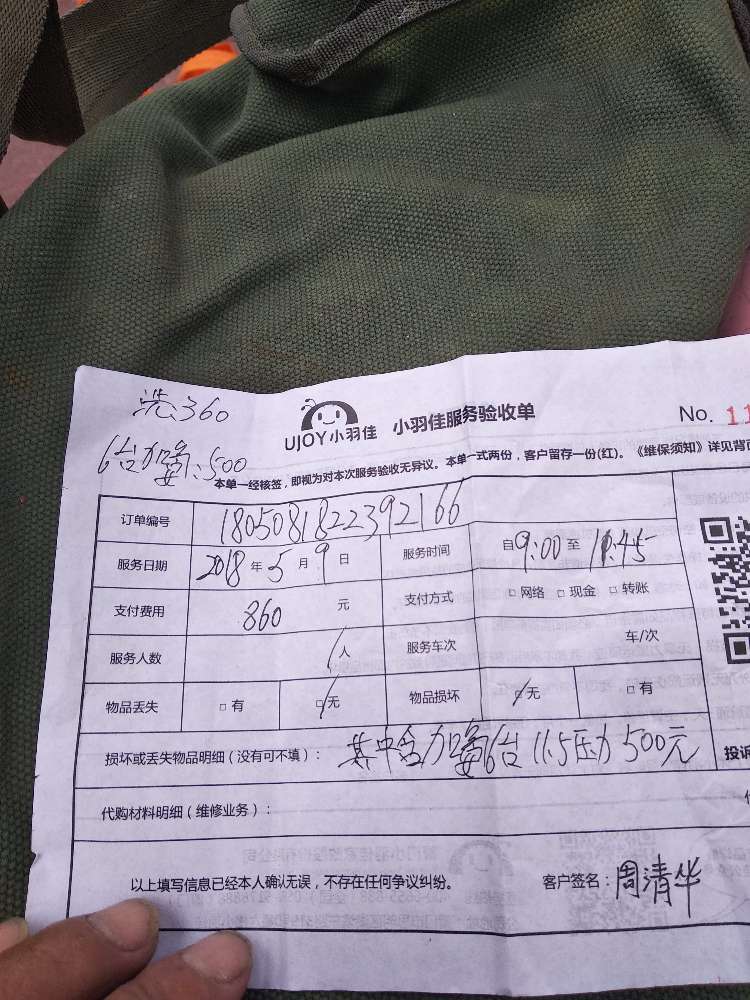 洗:360
6台加氟:500
UJOY小羽佳 小羽佳服务验收单 No. 11
本单一经核签,即视为对本次服务验收无异议。本单一式两份,客户留存一份(红)。《维保须知》详见背面
订单编号 180508182239 2166
服务日期 2018年5月9日 服务时间 自9:00至11:45
支付费用 860元 支付方式 □网络 □现金 □转账
服务人数 1人 服务车次 车/次
物品丢失 □有 □无 物品损坏 □无 □有
损坏或丢失物品明细(没有可不填): 其中含加氟6台 11.5压力 500元
投诉
代购材料明细(维修业务):
以上填写信息已经本人确认无误,不存在任何争议纠纷。 客户签名:周清华